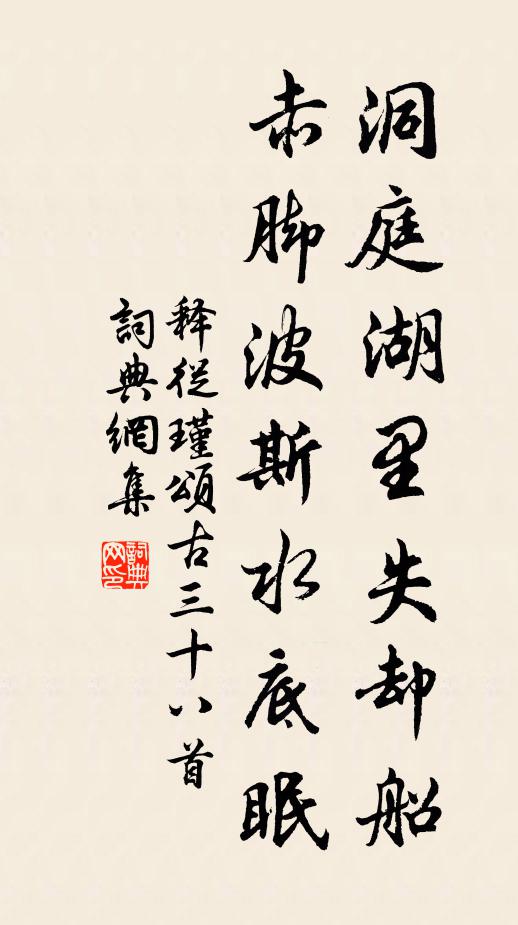 洞庭湖里失却船
赤脚波斯水底眠
释从瑾颂古三十八首
詞典網集
詞典网印